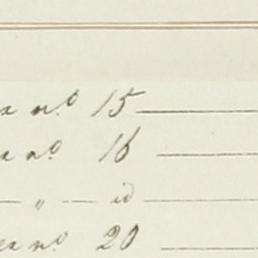 a n.º 15
a n.º 16
— „ — id
ea n.º 20